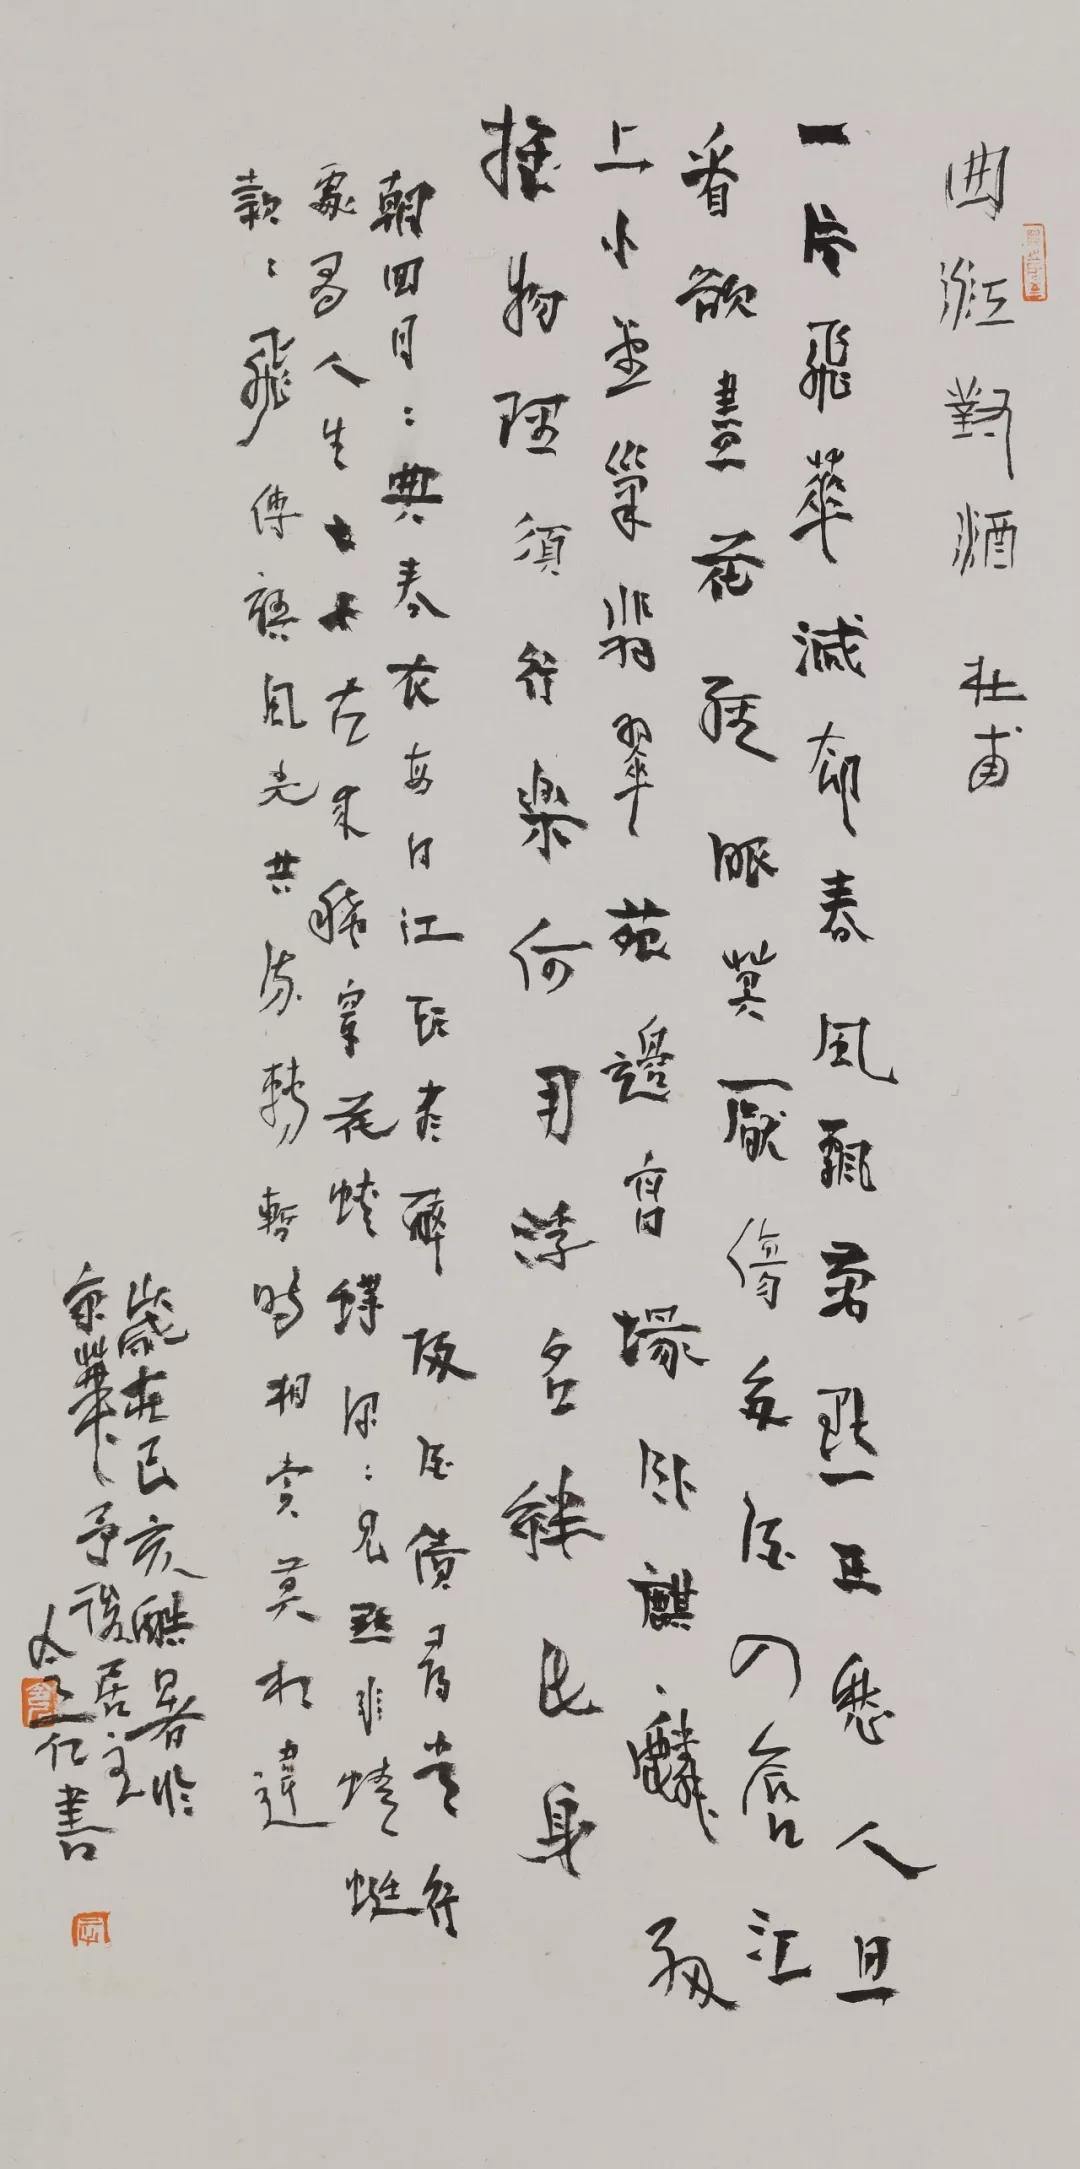 曲江對酒 杜甫
一片飛華減却春風飄萬點正愁人且
看欲盡花經眼莫厭傷多酒入脣江
上小堂巢翡翠苑邊高塚臥麒麟細
推物理須行樂何用浮名絆此身
朝回日日典春衣每日江頭盡醉歸酒債尋常行
處有人生七十古來稀穿花蛺蝶深深見點水蜻蜓
款款飛傳語風光共流轉暫時相賞莫相違
歲在己亥酷暑於
京華予後居主
仁書